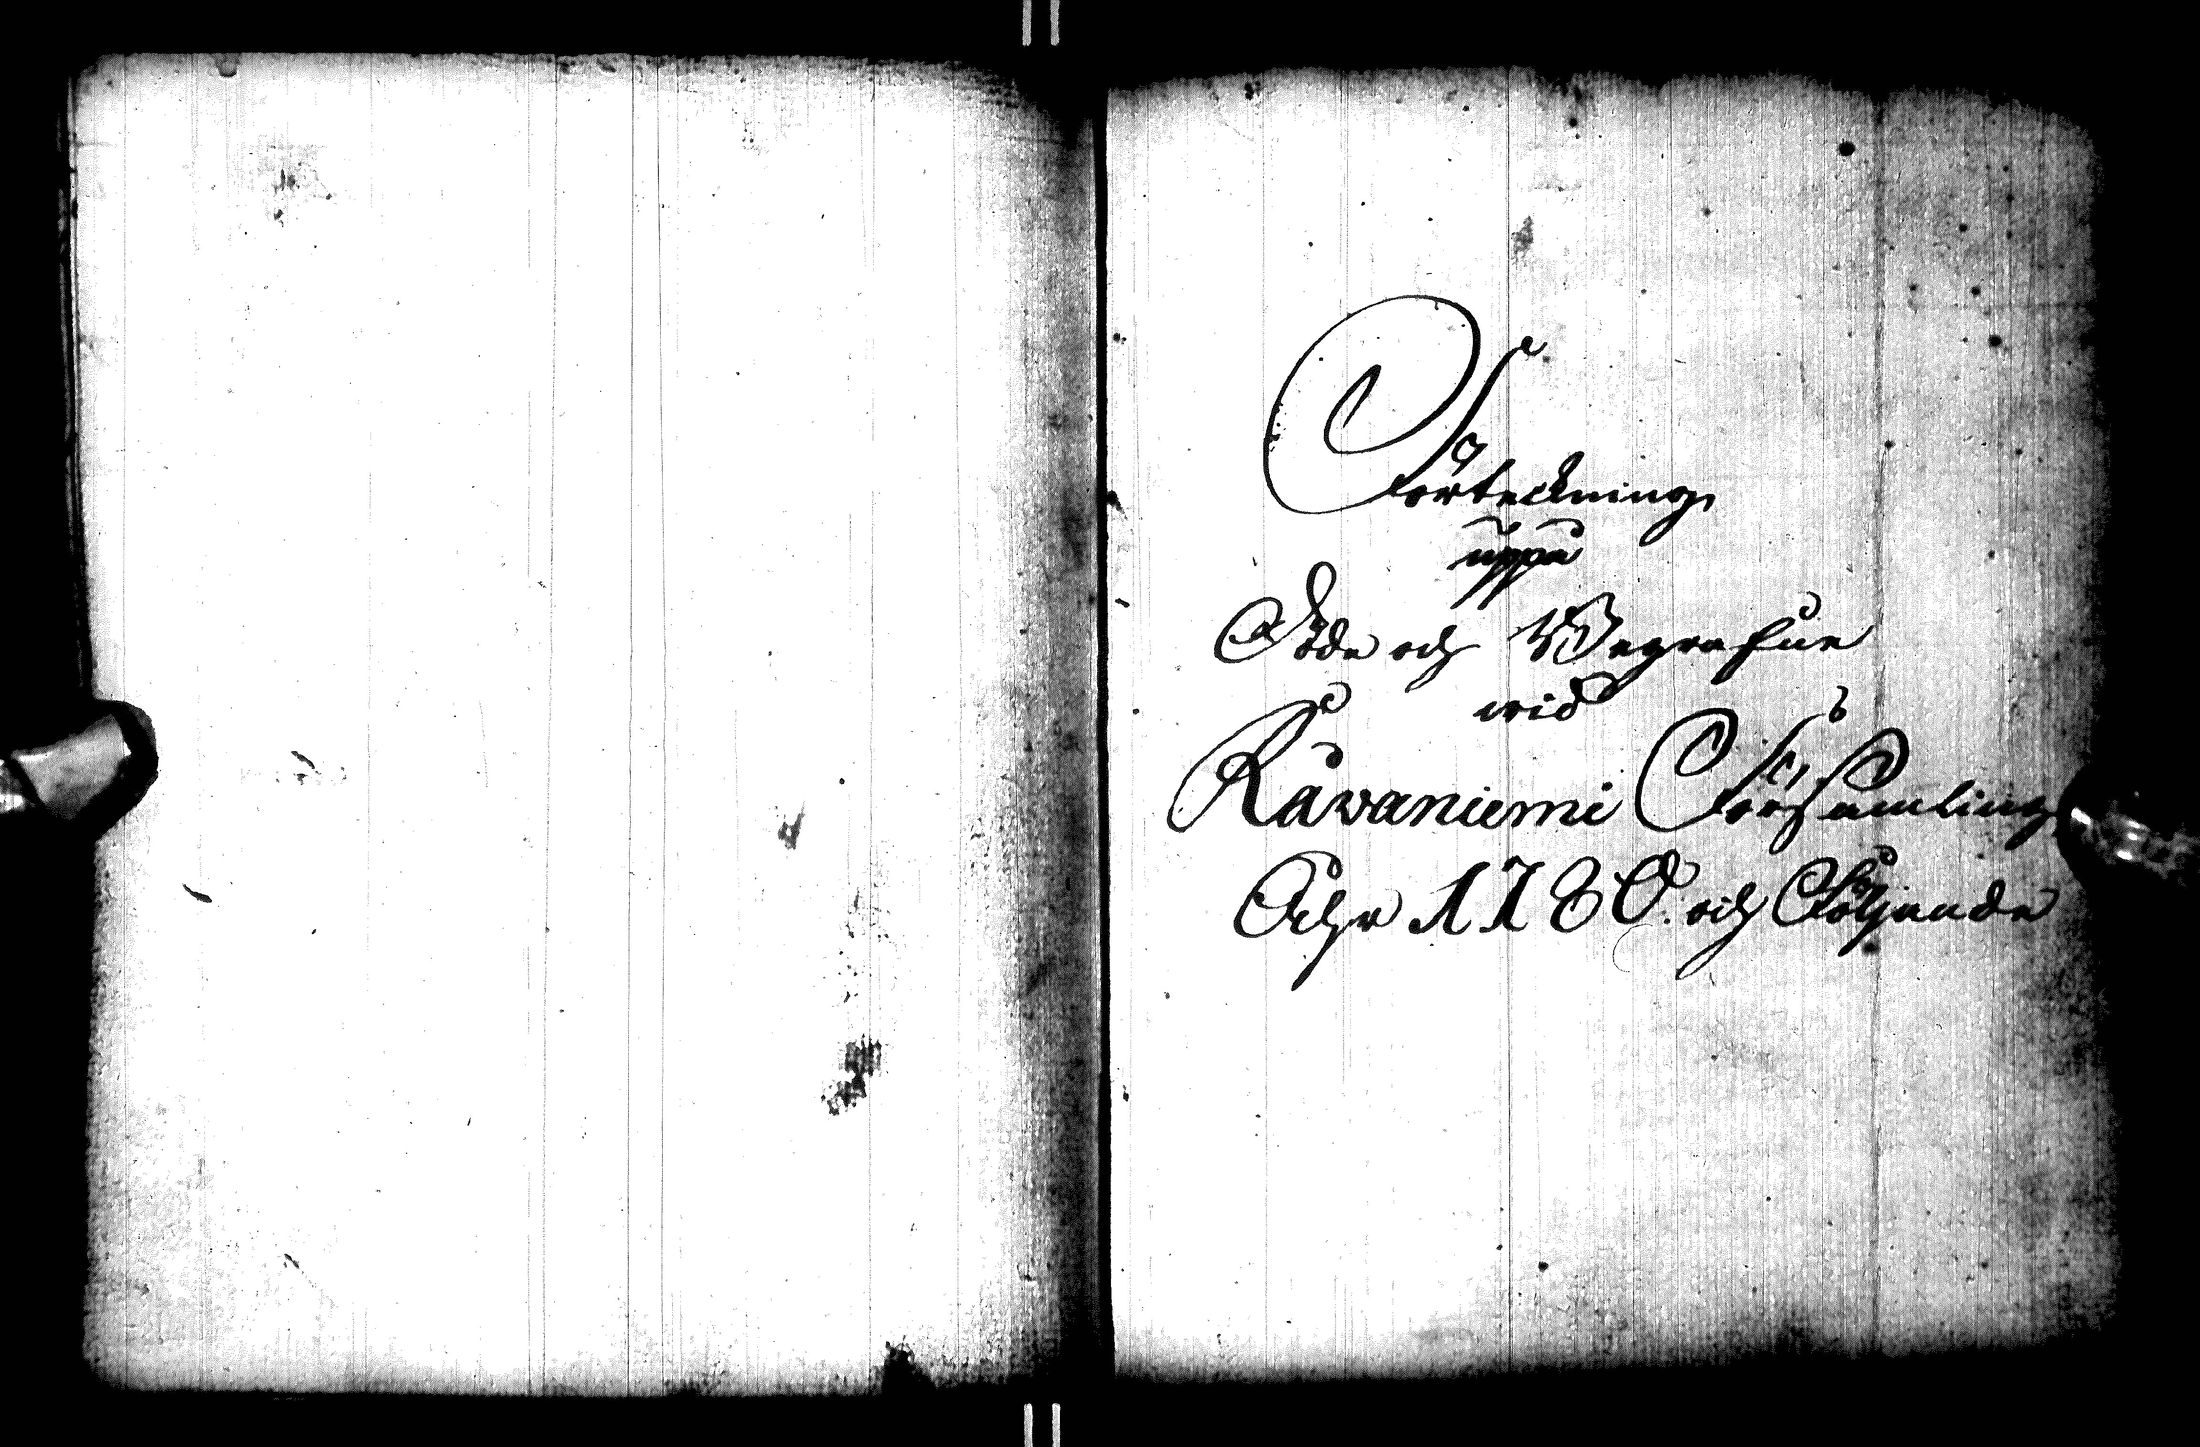 Förteckning
uppå
Döde och Begrafne
wid
Råvaniemi Församling
Åhr 1780. och Följande